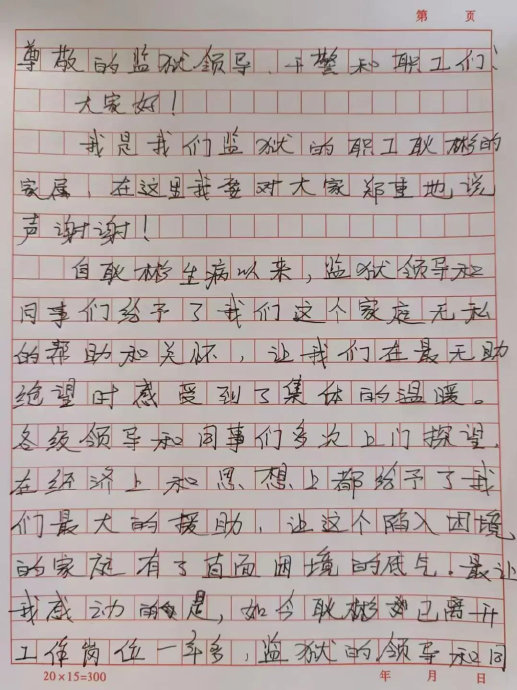 第 页
尊敬的监狱领导、干警和职工们:
大家好!
我是我们监狱的职工耿彬的
家属,在这里我要对大家郑重地说
声谢谢!
自耿彬生病以来,监狱领导和
同事们给予了我们这个家庭无私
的帮助和关怀,让我们在最无助
绝望时感受到了集体的温暖。
各级领导和同事们多次上门探望,
在经济上和思想上都给予了我
们最大的援助,让这个陷入困境
的家庭有了直面困境的底气。最让
我感动的是,如今耿彬已离开
工作岗位一年多,监狱的领导和同
20×15=300 年 月 日